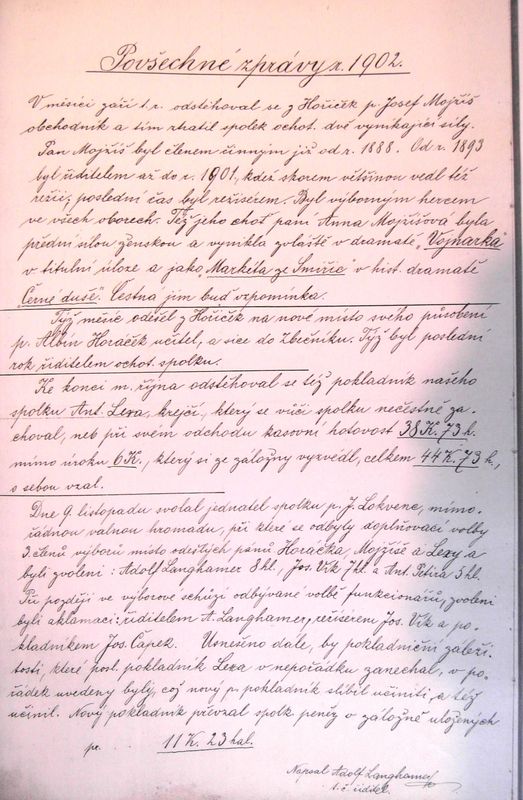 Povšechné zprávy r. 1902.
V měsíci září t.r. odstěhoval se z Hořiček p. Josef Mojžíš
obchodník a tím ztratil spolek ochot. dvě vynikající síly.
Pan Mojžíš byl členem činným již od r. 1888. Od r. 1893
byl ředitelem až do r. 1901, kdež skorem většinou vedl též
režii, poslední čas byl režisérem. Byl výborným hercem
ve všech oborech. Též jeho choť paní Anna Mojžíšova byla
přední silou ženskou a vynikla zvláště v dramatě „Vojnarka"
v titulní úloze a jako „Markéta ze Smiřic" v hist. dramatě
„Černé duše". Čestná jim buď vzpomínka.
Týž měsíc odešel z Hořiček na nové místo svého působení
p. Albín Horáček učitel, a sice do Zbečníku. Týž byl poslední
rok ředitelem ochot. spolku.
Ke konci m. října odstěhoval se též pokladník našeho
spolku Ant. Lexa, krejčí, který se vůči spolku nečestně za-
choval, neb při svém odchodu kasovní hotovost 38 K. 73 h.
mimo úroku 6 K., který si ze záložny vyzvedl, celkem 44 K. 73 h.,
s sebou vzal.
Dne 9. listopadu svolal jednatel spolku p. J. Lokvenc, mimo-
řádnou valnou hromadu, při které se odbyly doplňovací volby
3. členů výboru místo odešlých pánů Horáčka, Mojžíše a Lexy a
byli zvoleni: Adolf Langhamer 8 hl., Jos. Vik 7 hl. a Ant. Petira 5 hl.
Při později ve výborové schůzi odbývané volbě funkcionářů, zvoleni
byli aklamací: ředitelem A. Langhamer, režisérem Jos. Vik a po-
kladníkem Jos. Čapek. Usnešeno dále, by pokladniční záleži-
tosti, které posl. pokladník Lexa v nepořádku zanechal, v po-
řádek uvedeny byly, což nový p. pokladník slíbil učiniti, a též
učinil. Nový pokladník převzal spolk. peněz v záložně uložených
pr. 11 K. 23 hal.
Napsal Adolf Langhamer
t. č. ředitel.